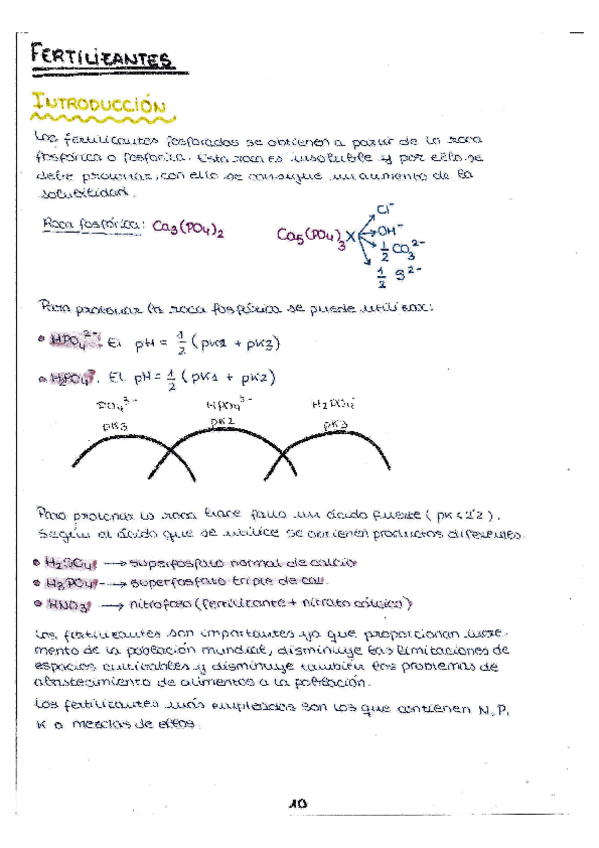 FERTILIZANTES
INTRODUCCIÓN
Los fertilizantes fosforados se obtienen a partir de la roca
fosfórica o fosforita. Esta roca es insoluble y por ello se
debe protonar, con ello se consigue un aumento de la
solubilidad.
Roca fosfórica: Ca3(PO4)2 Ca5(PO4)3X
Cl⁻
OH⁻
1/2 CO3²⁻
1/2 S²⁻
Para protonar la roca fosfórica se puede utilizar:
• HPO4²⁻. El pH = 1/2 (pK2 + pK3)
• H2PO4⁻. El pH = 1/2 (pK1 + pK2)
PO4³⁻ HPO4³⁻ H2PO4⁻
pK3 pK2 pK3
Para protonar la roca hace falta un ácido fuerte (pK<2'2).
Según el ácido que se utilice se obtienen productos diferentes.
• H2SO4 → superfosfato normal de calcio
• H3PO4 → superfosfato triple de cal
• HNO3 → nitrofoso (fertilizante + nitrato cálcico)
Los fertilizantes son importantes ya que proporcionan incre-
mento de la población mundial, disminuye las limitaciones de
espacios cultivables y disminuye también los problemas de
abastecimiento de alimentos a la población.
Los fertilizantes más empleados son los que contienen N, P,
K o mezclas de ellos.
10